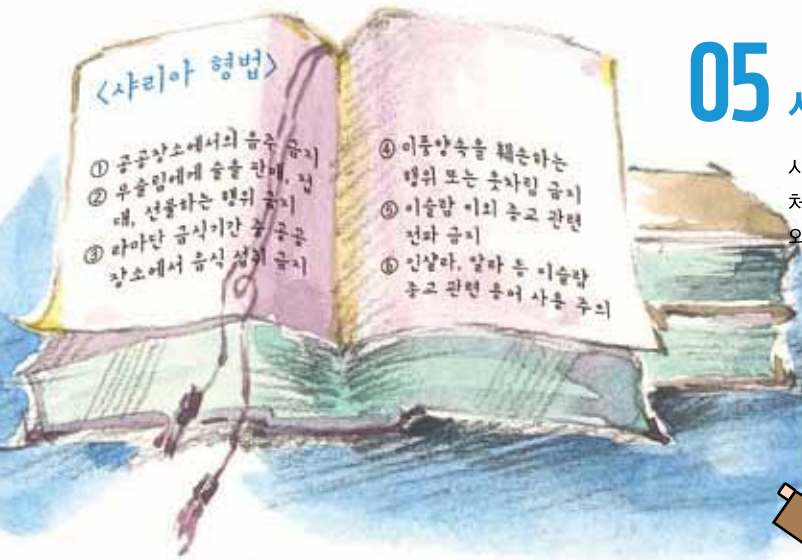 <샤리아 형법>
① 공공장소에서의 음주 금지
② 무슬림에게 술을 판매, 접
대, 선물하는 행위 금지
③ 라마단 금식기간 중 공공
장소에서 음식 섭취 금지
④ 미풍양속을 훼손하는
행위 또는 옷차림 금지
⑤ 이슬람 이외 종교 관련
전파 금지
⑥ 인샬라, 알라 등 이슬람
종교 관련 용어 사용 주의
05